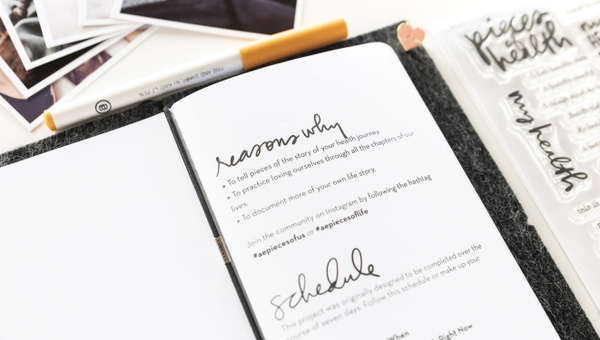 reasons why
▸ To tell pieces of the story of your health journey.
▸ To practice loving ourselves through all the chapters of our
lives.
▸ To document more of your own life story.
Join the community on Instagram by following the hashtag
#aepiecesofus or #aepiecesoflife
schedule
This project was originally designed to be completed over the
course of seven days. Follow this schedule or make up your
When
Right Now
pieces
of
health
my health
this is